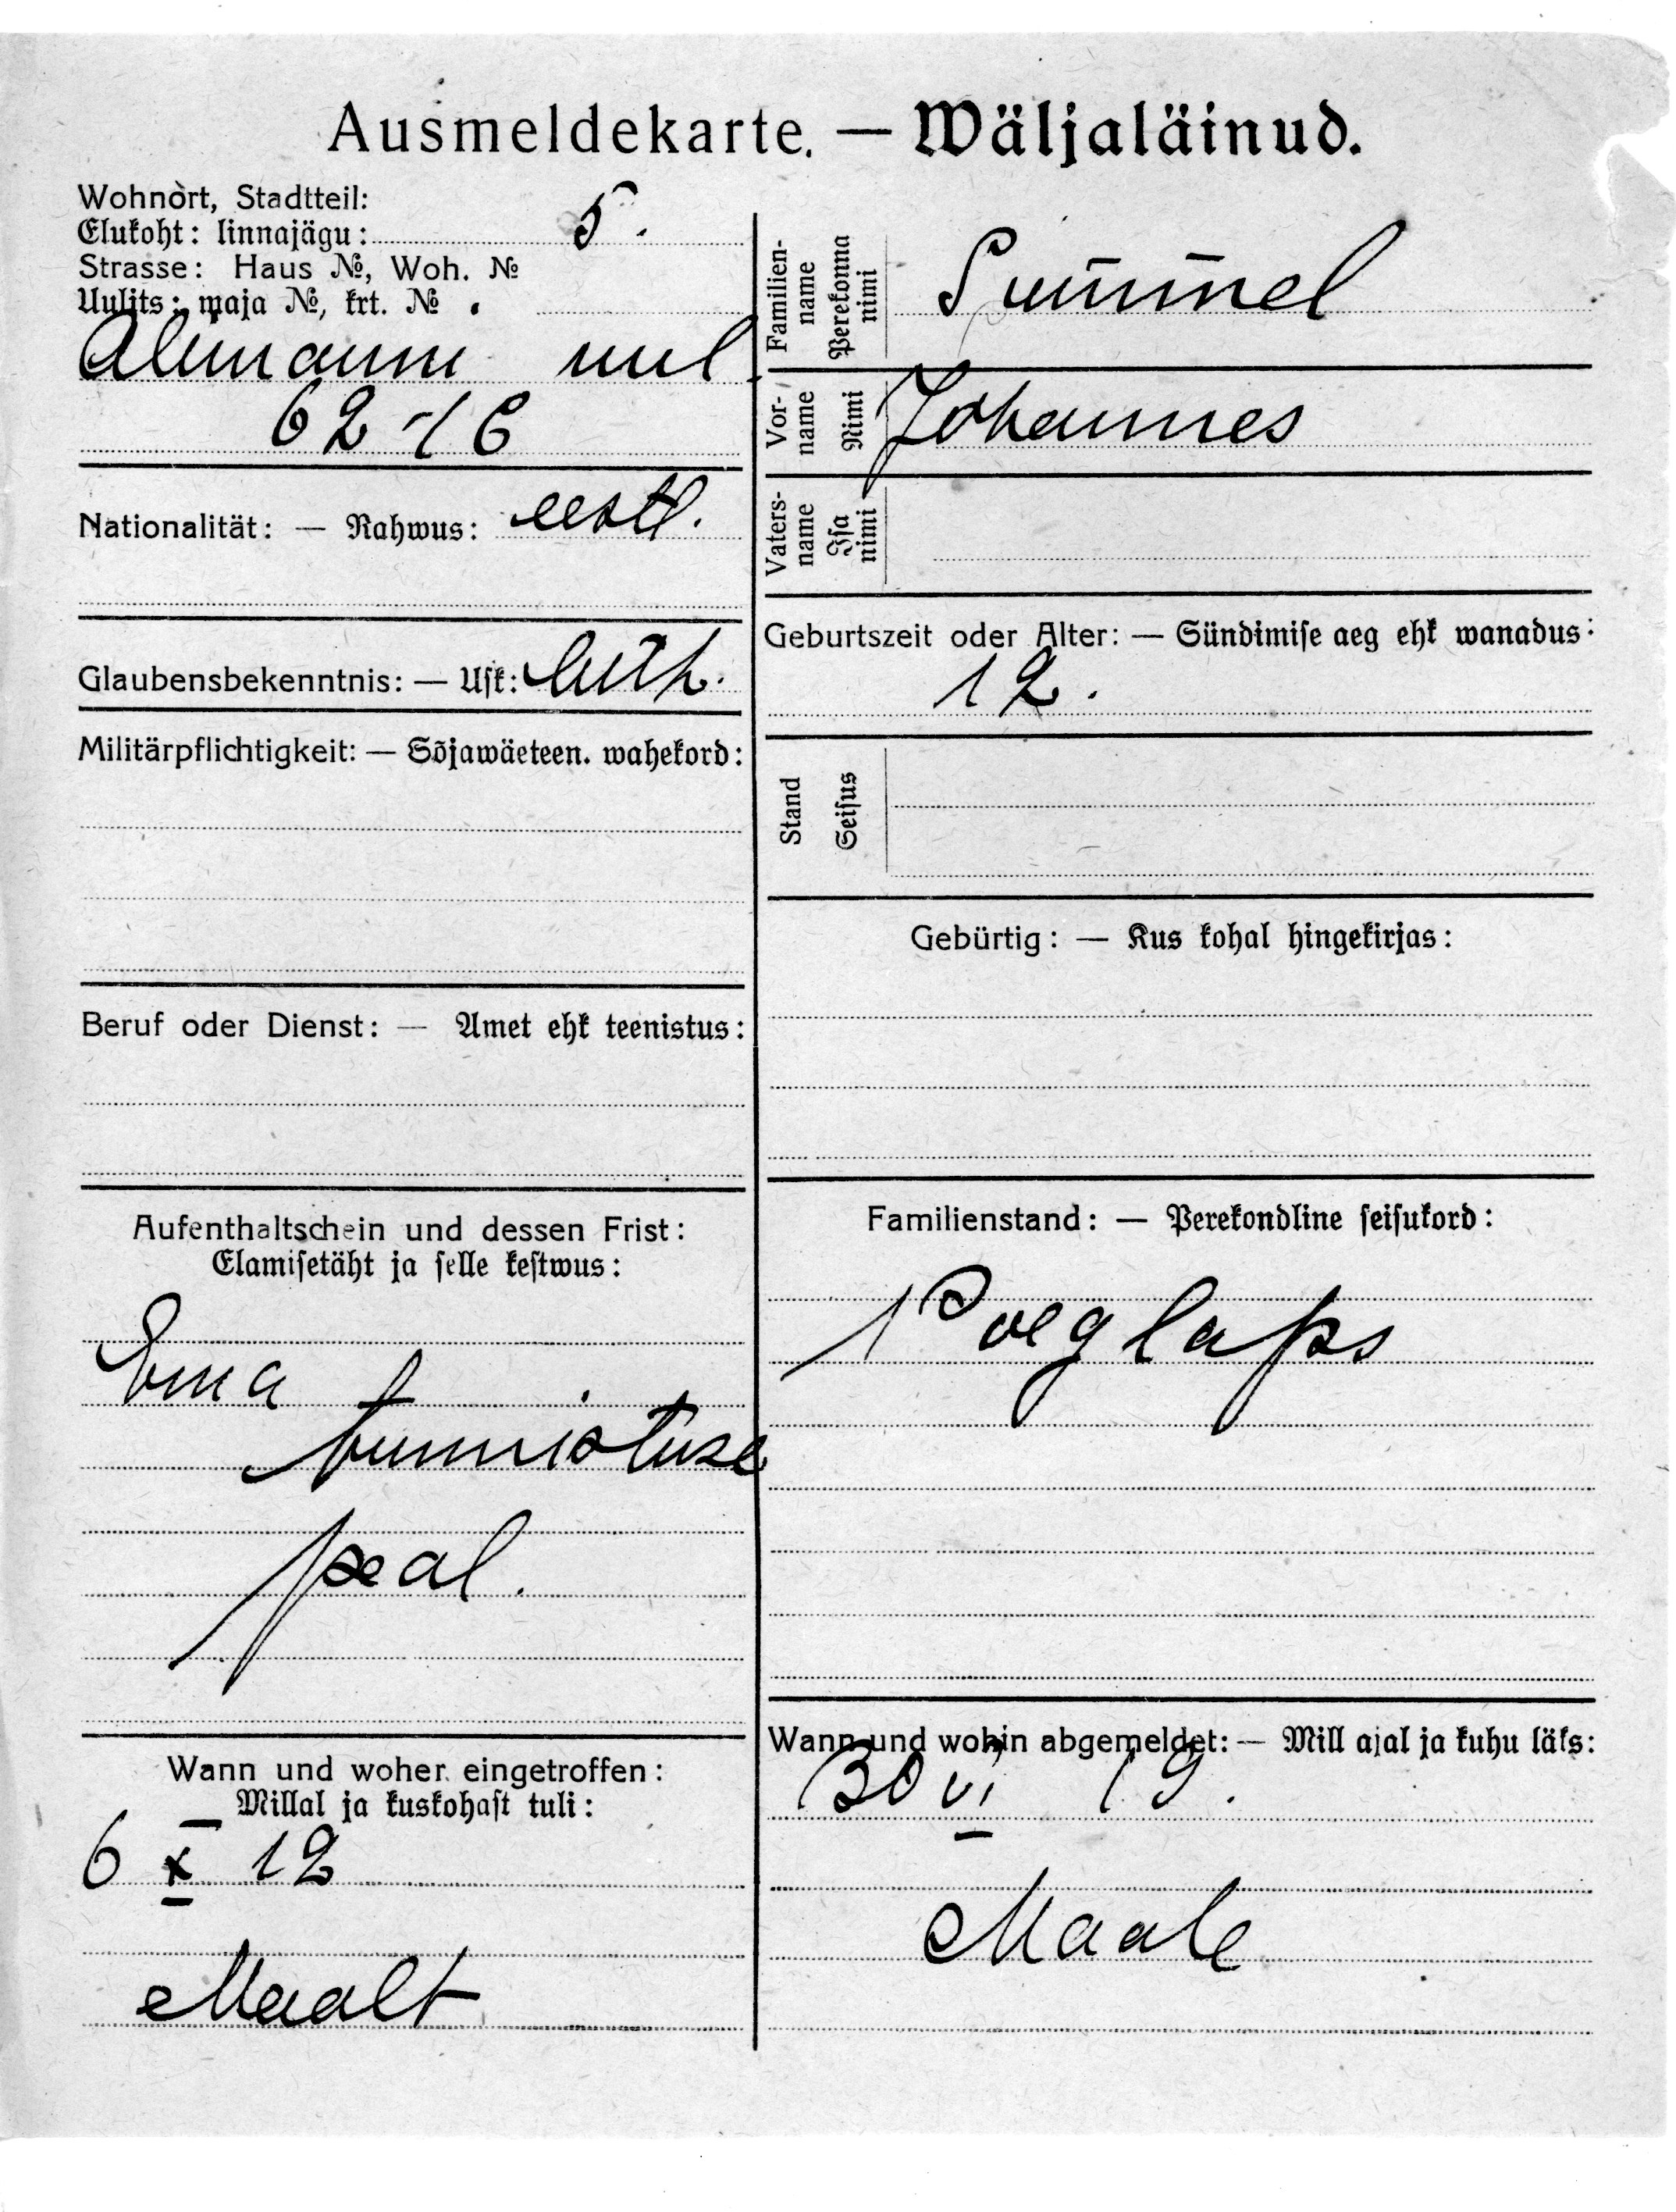 Ausmeldekarte. — Wäljaläinud.
Wohnort, Stadtteil:
Elukoht: linnajägu: 5.
Strasse: Haus №, Woh. №
Uulits: maja №, krt. №
uul.
62-16
Nationalität: — Rahwus: eestl.
Glaubensbekenntnis: — Usk: luth.
Militärpflichtigkeit: — Sõjawäeteen. wahekord:
Beruf oder Dienst: — Amet ehk teenistus:
Aufenthaltschein und dessen Frist:
Elamisetäht ja selle kestwus:
Ema
tunnistuse
peal.
Wann und woher eingetroffen:
Millal ja kuskohast tuli:
6 X 12
Maalt
Familien-
name
Perekonna
nimi
Vor-
name
Nimi
Johannes
Vaters-
name
Isa
nimi
Geburtszeit oder Alter: — Sündimise aeg ehk wanadus:
12.
Stand
Seisus
Gebürtig: — Kus kohal hingekirjas:
Familienstand: — Perekondline seisukord:
Poeglaps
Wann und wohin abgemeldet: — Mill ajal ja kuhu läks:
30 VI 19.
Maale